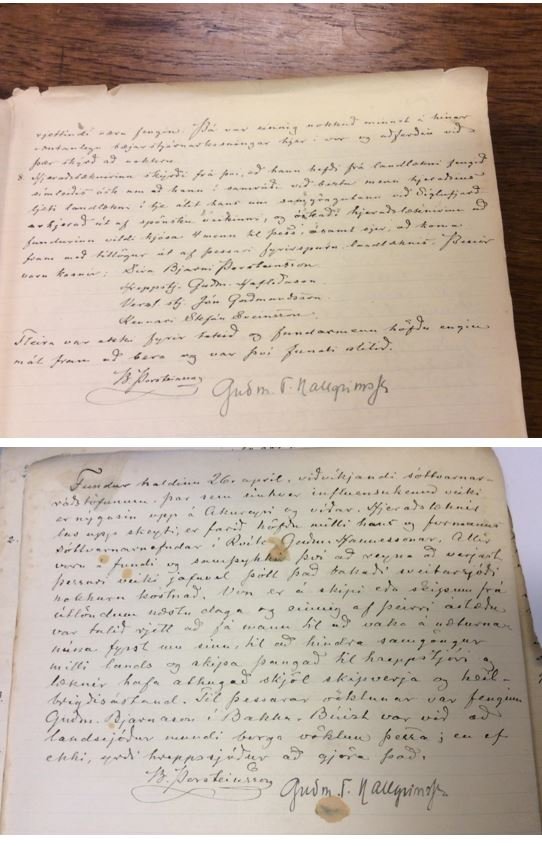 rjettindi væru fengin. Þá var einnig nokkuð minnst á hinar
væntanlegu bæjarstjórnarkosningar hjer í vor og aðferðin við
þær skýrð að nokkru.
8. Hjeraðslæknirinn skýrði frá því, að hann hefði frá landlækni fengið
símleiðis ósk um að hann í samráði við beztu menn hjeraðsins
ljeti landlækni í tje álit hans um samgöngubann við Siglufjörð
út af spönsku veikinni, og óskaði hjeraðslæknirinn að
fundurinn vildi kjósa 4 menn til þess, ásamt sjer, að koma
fram með tillögur út af þessari fyrirspurn landlæknis. Þessir
voru kosnir: Síra Bjarni Þorsteinsson
Hreppstj. Guðm. Hafliðason
Verzl. stj. Jón Guðmundsson
Kennari Stefán Sveinsson.
Fleira var ekki fyrir tekið og fundarmenn höfðu engin
mál fram að bera og var því fundi slitið.
B. Þorsteinsson Guðm. T. Hallgrímss
Fundur haldinn 26. apríl, viðvíkjandi sóttvarnar-
ráðstöfunum, þar sem einhver influensukend veiki
er nýgosin upp á Akureyri og víðar. Hjeraðslæknir
las upp skeyti, er farið höfðu milli hans og formanns
sóttvarnarnefndar í Rvík Guðm. Hannessonar. Allir
voru á fundi og samþykkir því að reyna að verjast
þessari veiki jafnvel þótt það bakaði sveitarsjóði
nokkurn kostnað. Von er á skipi eða skipum frá
útlöndum næstu daga og einnig af þeirri ástæðu
var talið rjett að fá mann til að vaka á næturnar
nú fyrst um sinn, til að hindra samgöngur
milli lands og skipsa þangað til hreppstjóri og
læknir hafa athugað skjöl skipverja og heil-
brigðisástand. Til þessarar vöktunar var fenginn
Guðm. Bjarnason í Bakka. Búizt var við að
landsjóður mundi borga vöktun þessa; en ef
ekki, yrði hreppsjóður að gjöra það.
B. Þorsteinsson Guðm. T. Hallgrímss